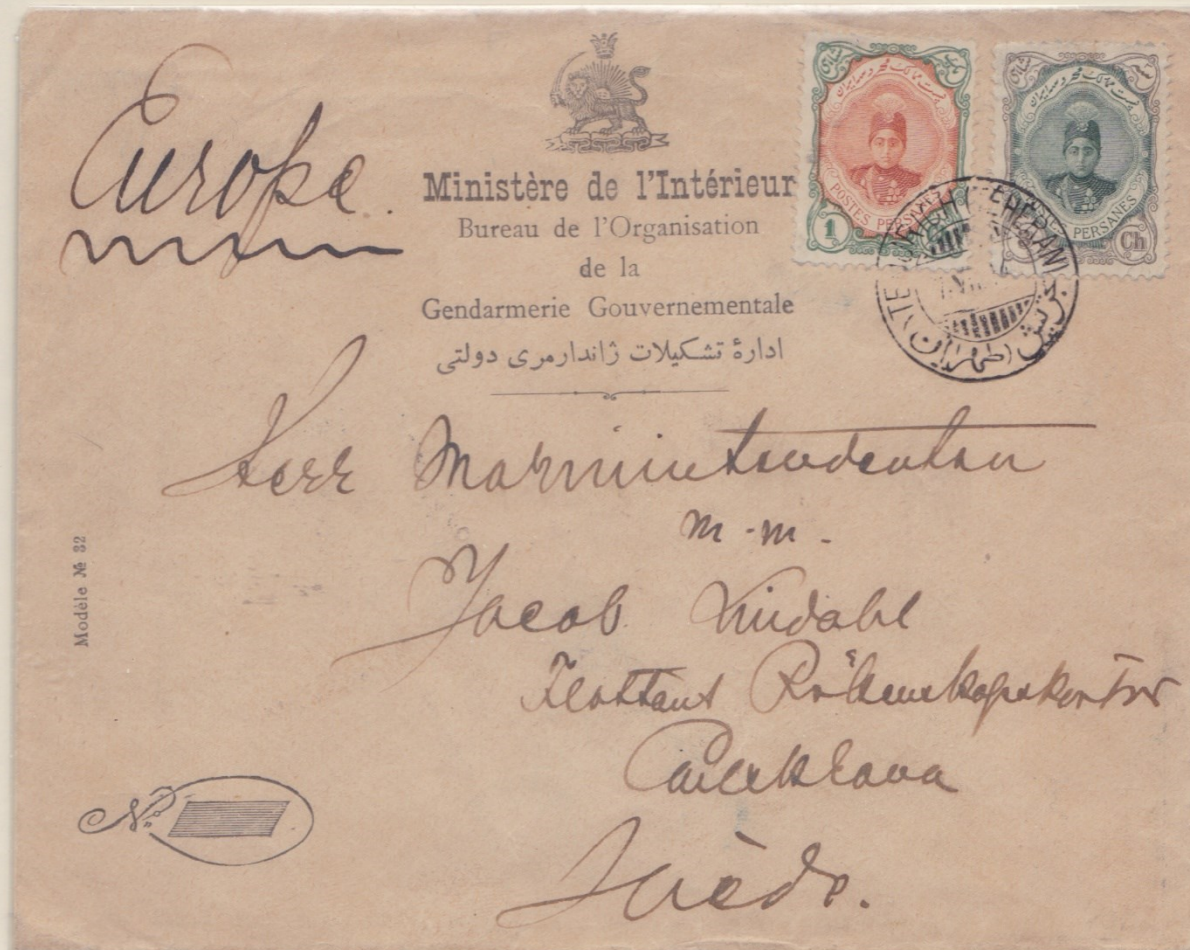 Europe.
Ministère de l'Intérieur
Bureau de l'Organisation
de la
Gendarmerie Gouvernementale
ادارهٔ تشکیلات ژاندارمری دولتی
POSTES PERSANES
1
PERSANES
Ch
تجریش (طهران)
Herr Marinintendenten
m.m.
Jacob Lindahl
Flottans Räkenskapskontor
Carlskrona
Suède.
Modèle № 32
№